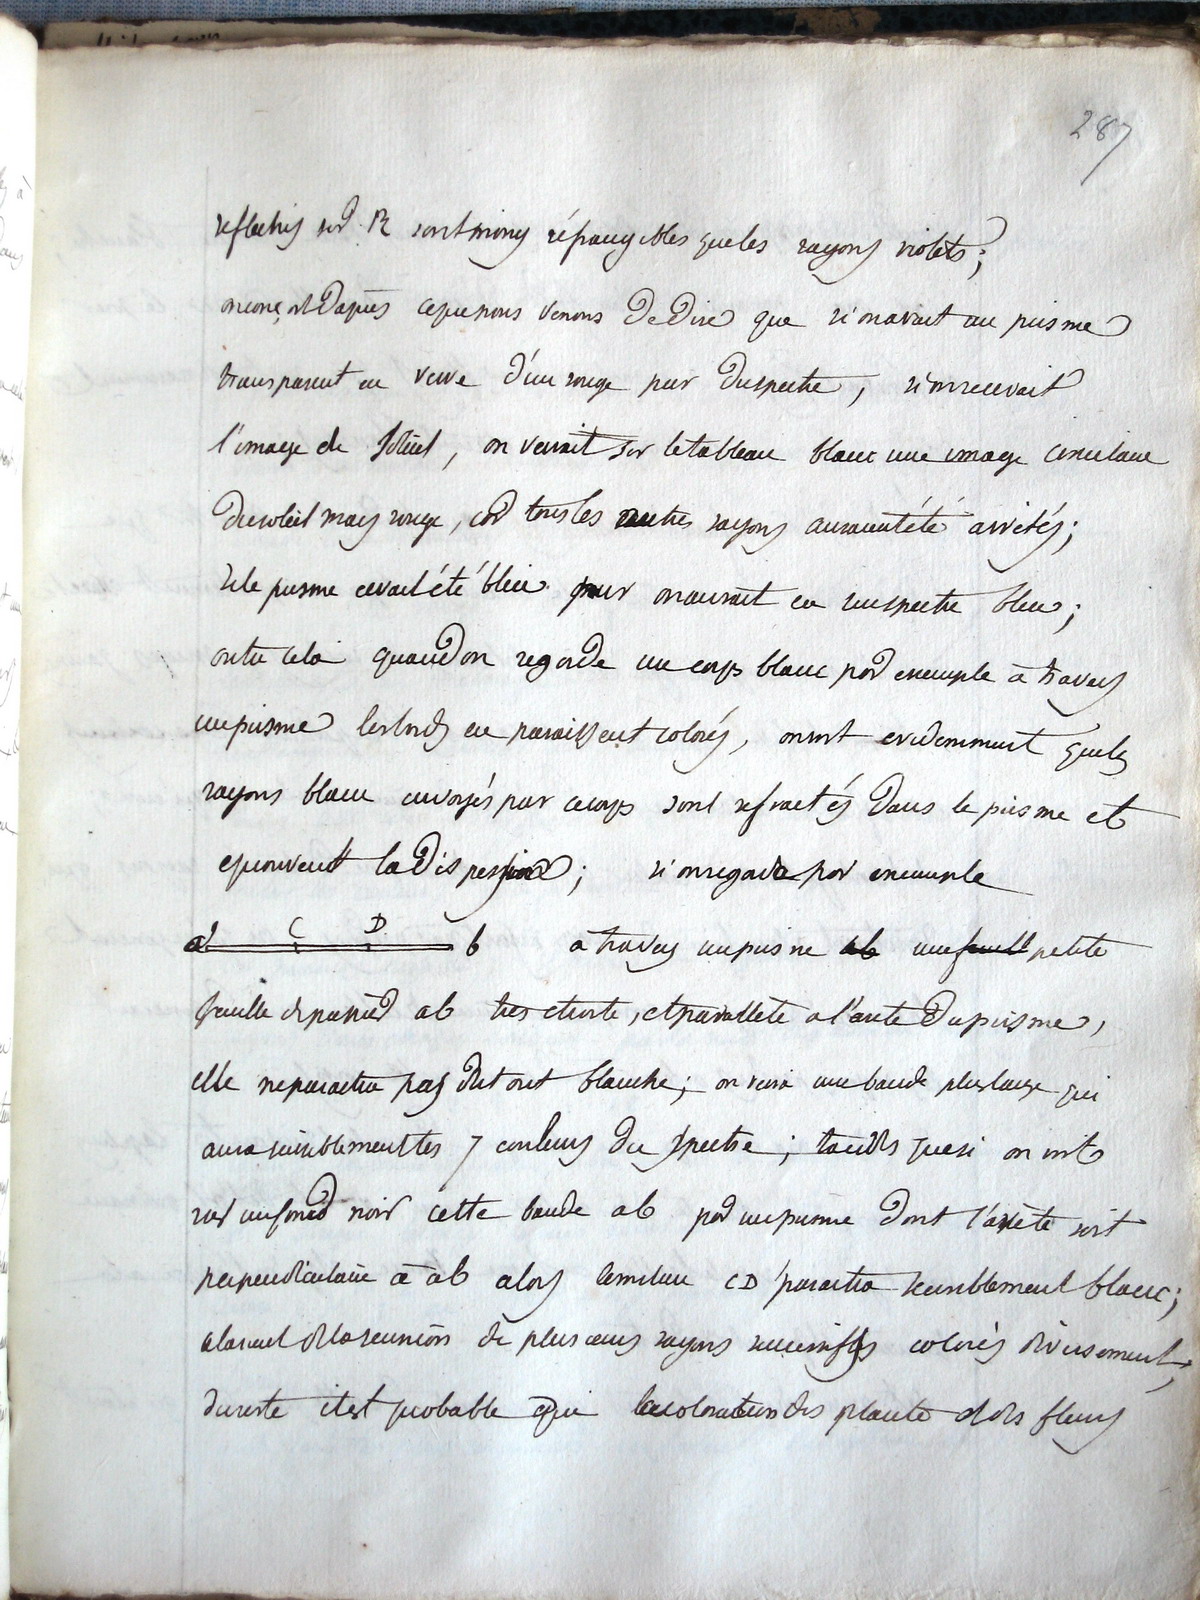 287
reflechis sur R sont moins réfrangibles que les rayons violets;
on conçoit d'après ce que nous venons de dire que si on avait un prisme
transparent en verre d'un rouge pur du spectre, si on recevait
l'image du Soleil, on verrait sur le tableau blanc une image circulaire
du soleil mais rouge, car tous les autres rayons auraient été arrêtés;
si le prisme avait été bleu pur on aurait eu un spectre bleu;
outre cela quand on regarde un corps blanc par exemple à travers
un prisme les bords en paraissent colorés, on voit evidemment que les
rayons blanc envoyés par ce corps sont refractés dans le prisme et
eprouvent la dispersion; si on regarde par exemple
a C D b a travers un prisme ab une feuille petite
feuille de papier ab tres etroite, et parallele a l'arete du prisme,
elle ne paraitra pas du tout blanche; on verra une bande plus large qui
aura sensiblement les 7 couleurs du spectre; tandis que si on voit
sur un fond noir cette bande ab par un prisme dont l'arrète soit
perpendiculaire à ab alors le milieu CD paraitra sensiblement blanc;
de la reunion de plusieurs rayons successifs colorés diversement,
du reste il est probable que la coloration des plante et des fleurs